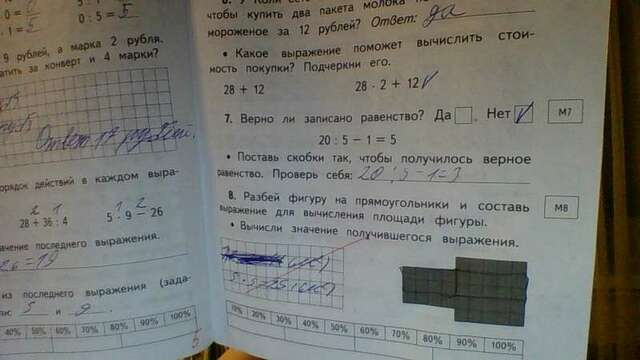 · 0 = 0
· 1 = 5
5 : 1 =
0 : 5 = 5
9 рублей, а марка 2 рубля.
атить за конверт и 4 марки?
Ответ 17 рублей.
орядок действий в каждом выра-
2 1
28 + 36 : 4
1 2
5 · 9 − 26
начение последнего выражения.
26 = 19
из последнего выражения (зада-
ли: 5 и 9
40% 50% 60% 70% 80% 90% 100%
5
чтобы купить два пакета молока
мороженое за 12 рублей? Ответ: да
• Какое выражение поможет вычислить стои-
мость покупки? Подчеркни его.
28 + 12
28 · 2 + 12 √
7. Верно ли записано равенство? Да. Нет √ М7
20 : 5 − 1 = 5
• Поставь скобки так, чтобы получилось верное
равенство. Проверь себя: 20 : 5 − 1 = 3
8. Разбей фигуру на прямоугольники и составь М8
выражение для вычисления площади фигуры.
• Вычисли значение получившегося выражения.
10% 20% 30% 40% 50% 60% 70% 80% 90% 100%